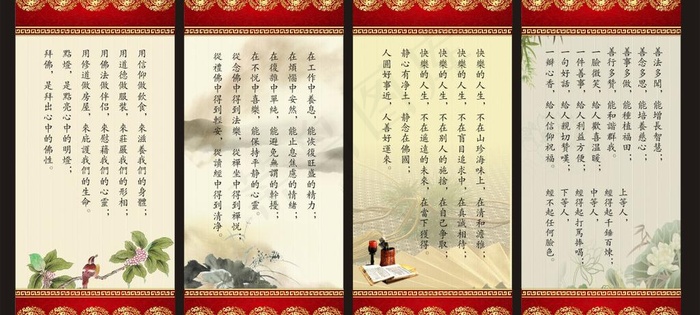 用信仰做飲食，來滋養我們的身體；
用道德做服裝，來莊嚴我們的形相；
用佛法做伴侶，來慰藉我們的心靈；
用修道做房屋，來庇護我們的生命。
點燈，是點亮心中的明燈；
拜佛，是拜出心中的佛性。
在工作中養息，能恢復旺盛的精力；
在煩惱中安然，能止息焦慮的情緒；
在複雜中單純，能避免無謂的干擾；
在不悅中喜樂，能保持平靜的心靈；
從念佛中得到法樂，從禪坐中得到禪悅；
從禮佛中得到輕安，從讀經中得到清净。
快樂的人生，不在山珍海味上，在清和澹雅；
快樂的人生，不在盲目追求中，在真誠相待；
快樂的人生，不在別人的施捨，在自己爭取；
快樂的人生，不在遙遠的未來，在當下獲得。
静心有净土，静念在佛國；
人圓好事近，人善好運來。
善法多聞，能增長智慧；
善念多思，能培養慈心；
善事多做，能種植福田；
善行多贊，能和諧群我。
一臉微笑，給人歡喜溫暖；
一件善事，給人利益方便；
一句好話，給人親切贊嘆；
一瓣心香，給人信仰祝福。
上等人，
經得起千錘百煉；
中等人，
經得起打罵捧喝；
下等人，
經不起任何臉色。